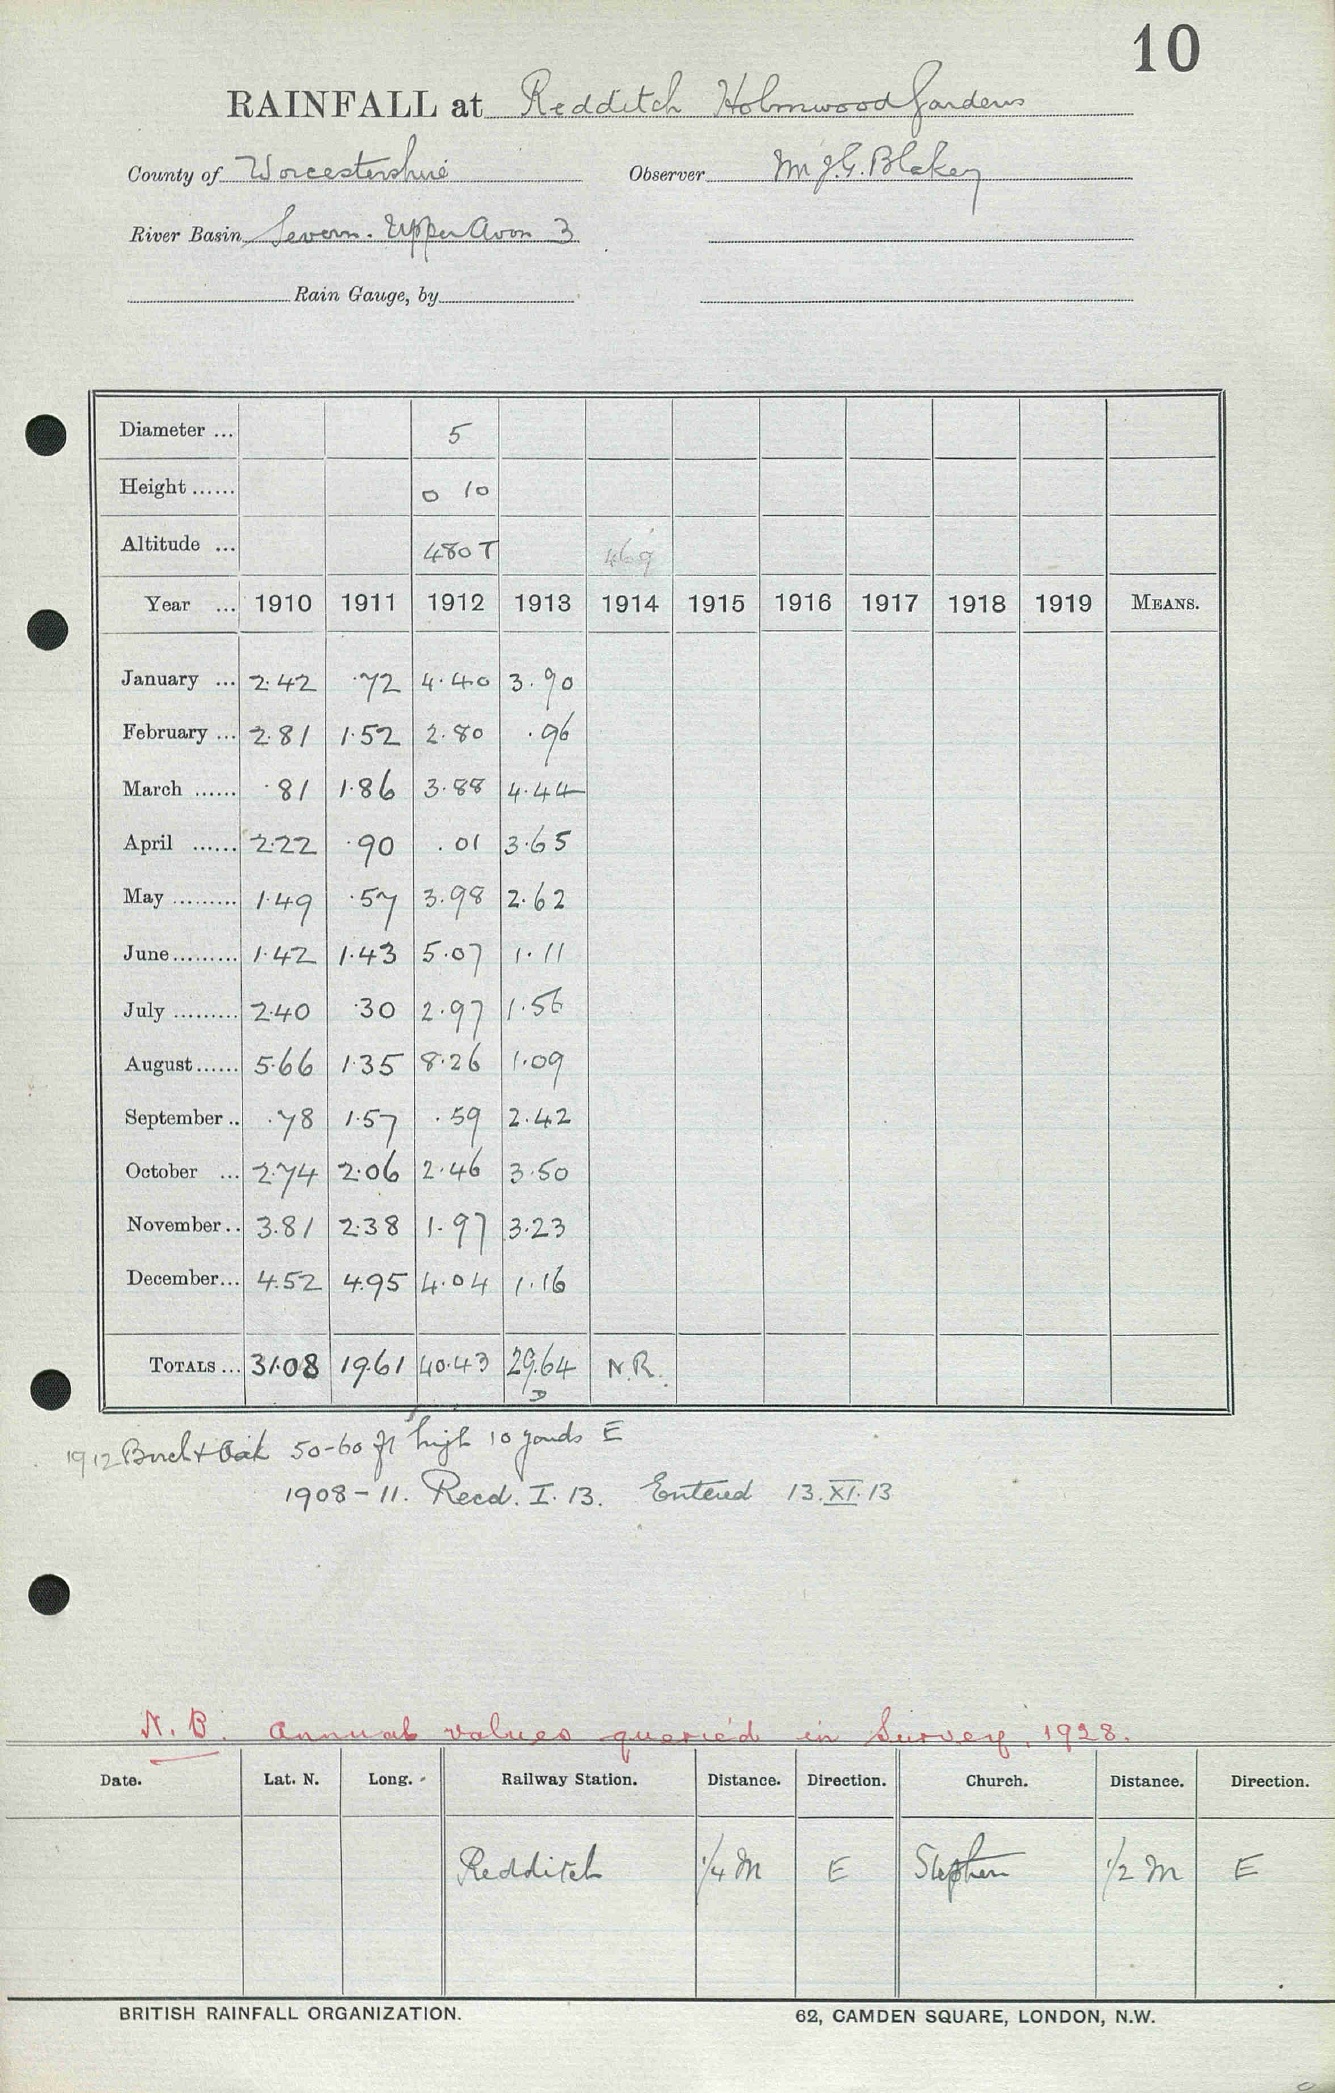 10
RAINFALL at Redditch Holmwood Gardens
County of Worcestershire Observer Mr J.G. Blakey
River Basin Severn. Upper Avon 3
Rain Gauge, by
Diameter ... 5
Height ...... 0 10
Altitude ... 480 T 469
Year ... 1910 1911 1912 1913 1914 1915 1916 1917 1918 1919 MEANS.
January ... 2.42 .72 4.40 3.90
February ... 2.81 1.52 2.80 .96
March ...... .81 1.86 3.88 4.44
April ...... 2.22 .90 .01 3.65
May ......... 1.49 .57 3.98 2.62
June ......... 1.42 1.43 5.07 1.11
July ......... 2.40 .30 2.97 1.56
August ...... 5.66 1.35 8.26 1.09
September .. .78 1.57 .59 2.42
October ... 2.74 2.06 2.46 3.50
November .. 3.81 2.38 1.97 3.23
December ... 4.52 4.95 4.04 1.16
TOTALS ... 31.08 19.61 40.43 29.64 N.R.
D
1912 Birch & Oak 50-60 ft high 10 yards E
1908-11. Recd. I. 13. Entered 13.XI.13
N.B. Annual values queried in Survey, 1928.
Date. Lat. N. Long. Railway Station. Distance. Direction. Church. Distance. Direction.
Redditch 1/4 M E Stephen 1/2 M E
BRITISH RAINFALL ORGANIZATION. 62, CAMDEN SQUARE, LONDON, N.W.